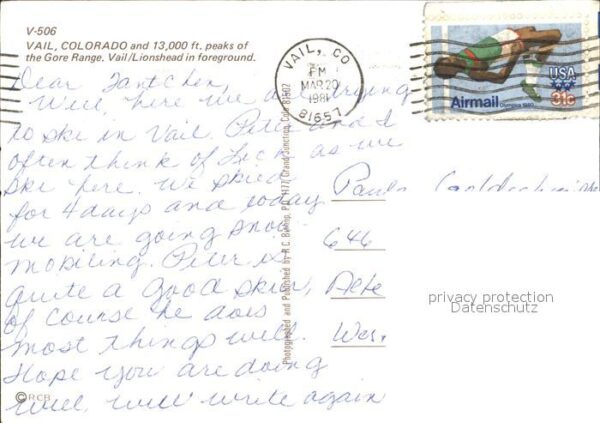 V-506
VAIL, COLORADO and 13,000 ft. peaks of
the Gore Range. Vail/Lionshead in foreground.
Dear Tantchen,
Well, here we are trying
to ski in Vail. Peter and I
often think of Lech as we
ski here. We skied
for 4 days and today
we are going snow
mobiling. Peter is
quite a good skier,
of course he does
most things well.
Hope you are doing
well, will write again
© RCB
Photographed and Published by R.C. Bishop, P.O. 1177, Grand Junction, Colo 81502
VAIL, CO
PM
MAR 20
1981
81657
USA
Airmail Olympics 1980 31c
Paula
646
Wes
privacy protection
Datenschutz